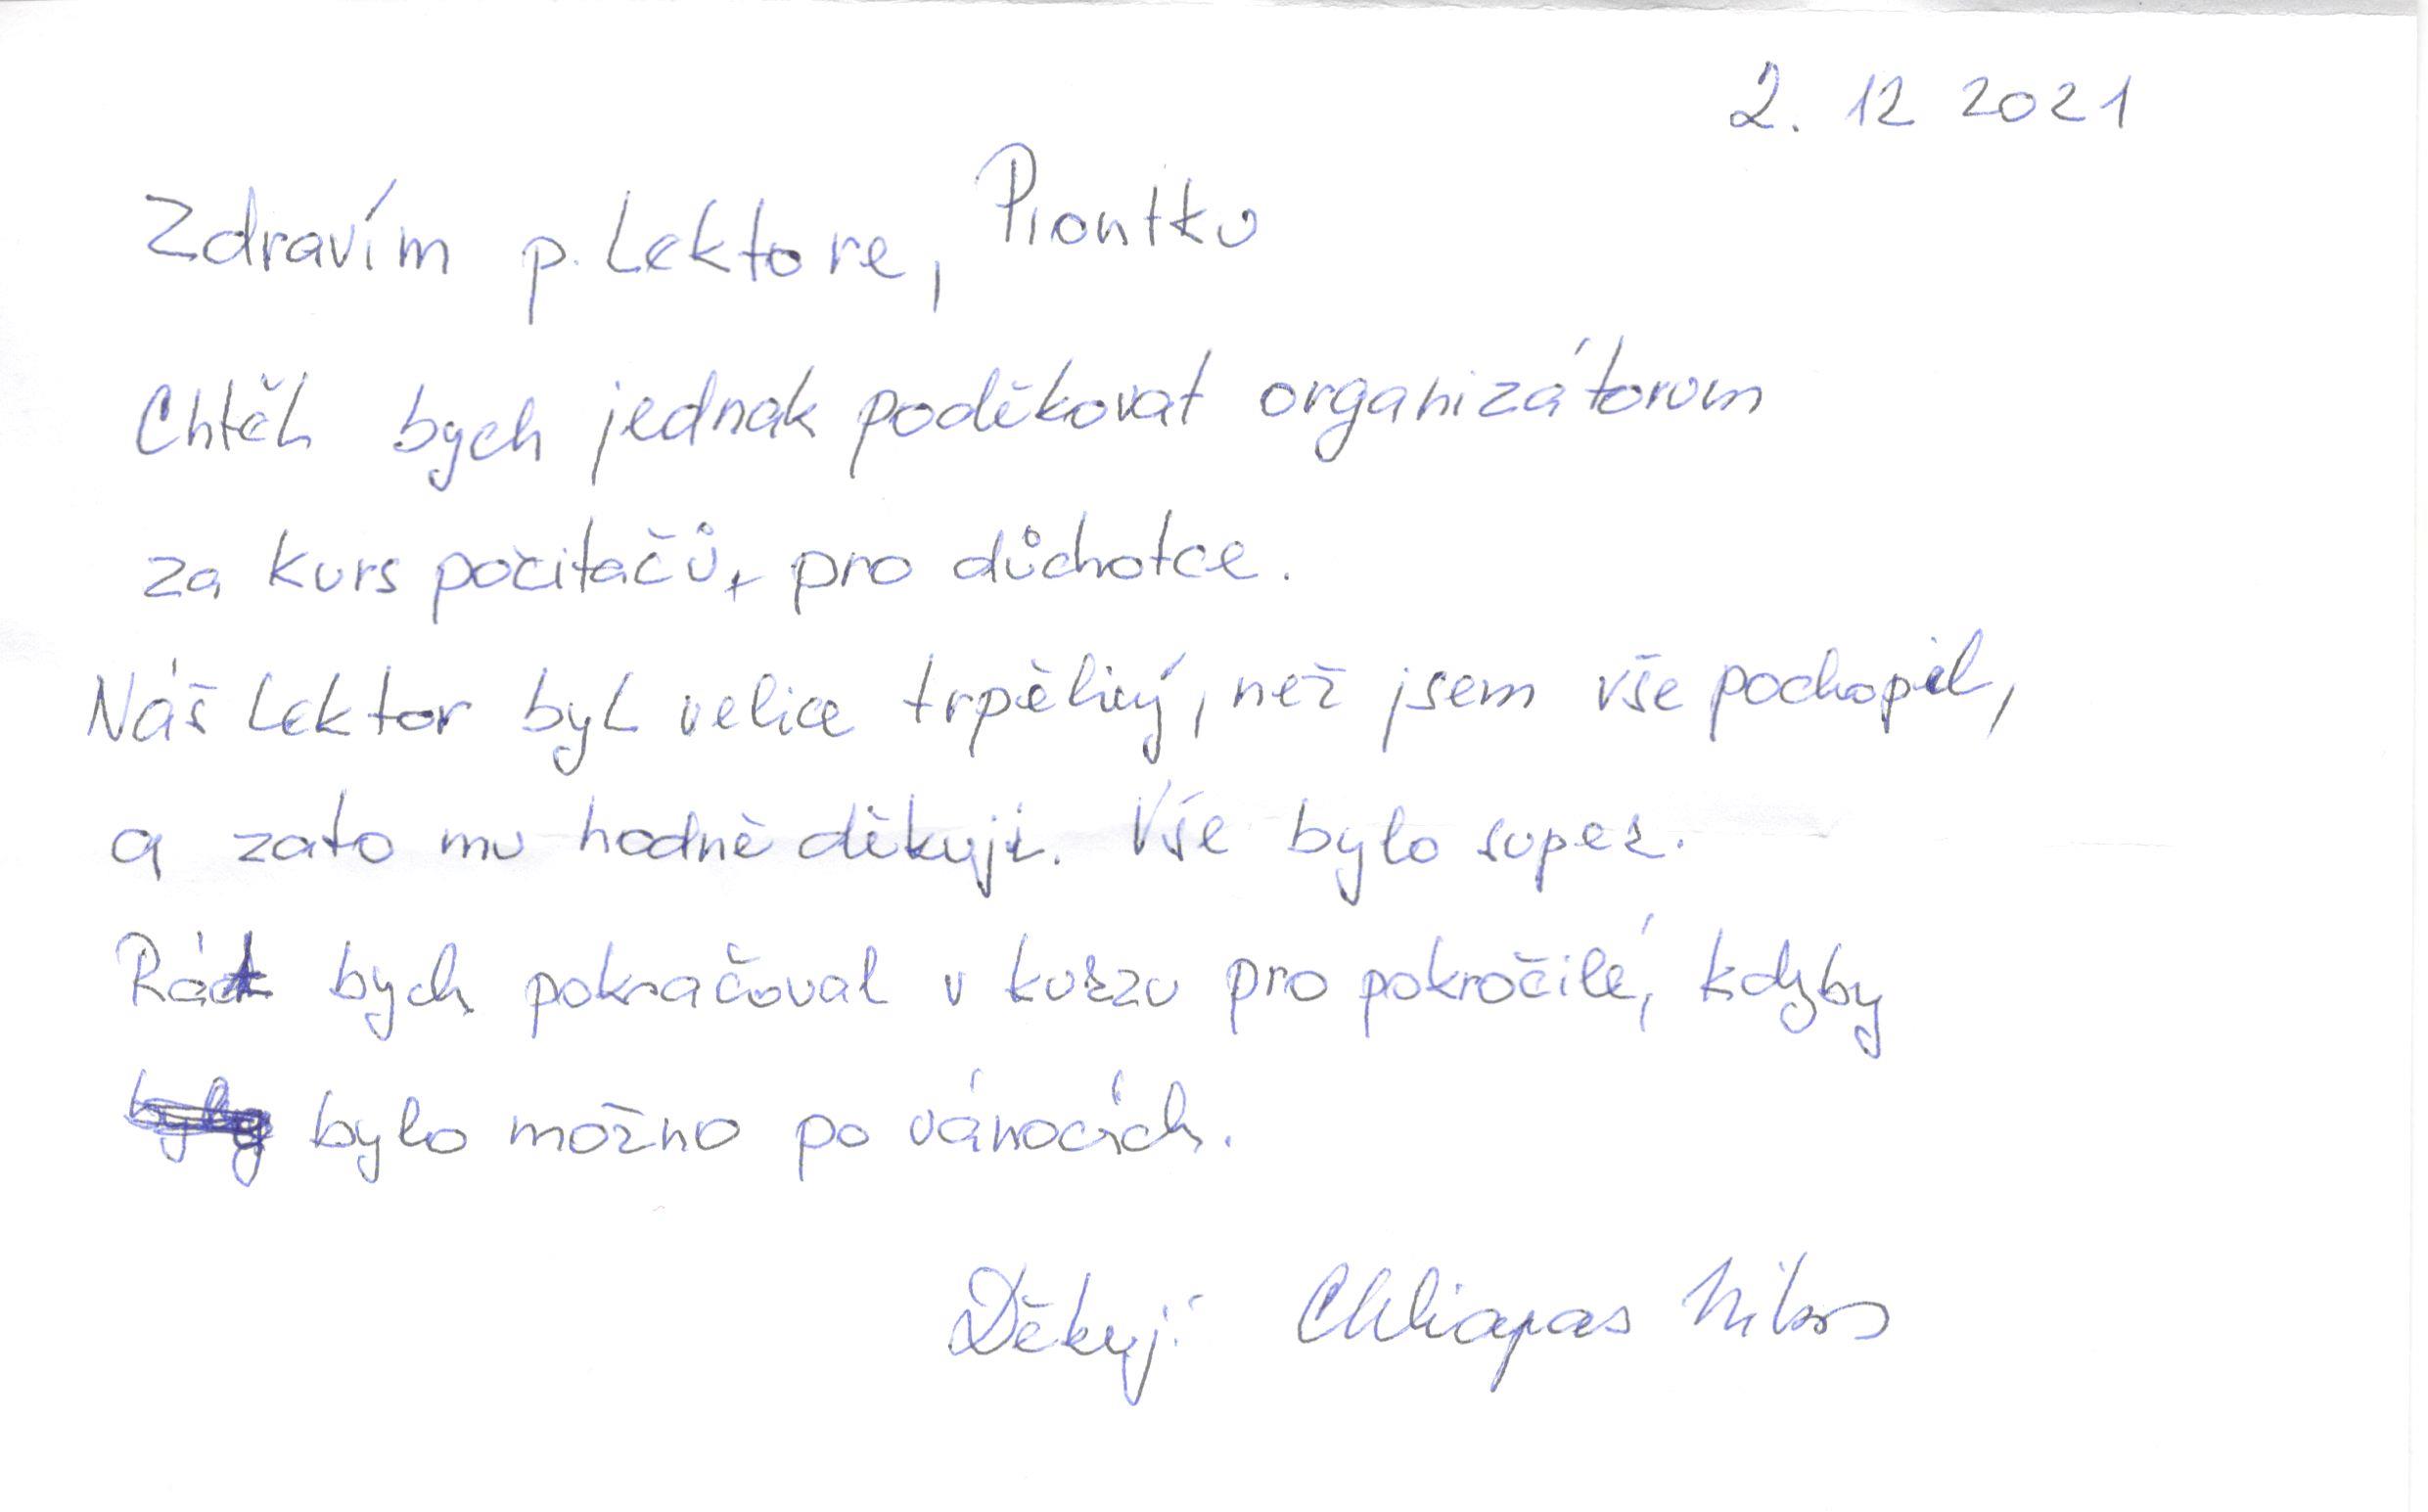 2. 12 2021
Zdravím p. Lektore, Piontku
Chtěl bych jednak poděkovat organizátorum
za kurs počitačů, pro důchotce.
Náš Lektor byl velice trpělivý, než jsem vše pochopil,
a zato mu hodně děkuji. Vše bylo super.
Rád bych pokračoval v kurzu pro pokročilé, kdyby
bylo možno po vánocích.
Děkuji Chliapas Nikos